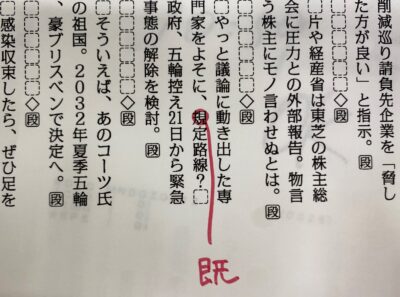 削減巡り請負先企業を「脅し
た方が良い」と指示。段
◇段
片や経産省は東芝の株主総
会に圧力との外部報告。物言
う株主にモノ言わせぬとは。段
◇段
やっと議論に動き出した専
門家をよそに、規定路線?
政府、五輪控え21日から緊急
事態の解除を検討。段
◇段
そういえば、あのコーツ氏
の祖国。2032年夏季五輪
、豪ブリスベンで決定へ。段
◇段
感染収束したら、ぜひ足を
既